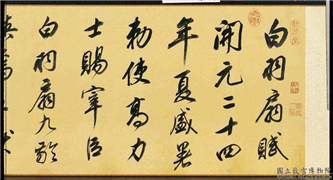 白羽扇賦
開元二十四
年夏盛暑
勅使高力
士賜宰臣
白羽扇九齡
國立故宮博物院